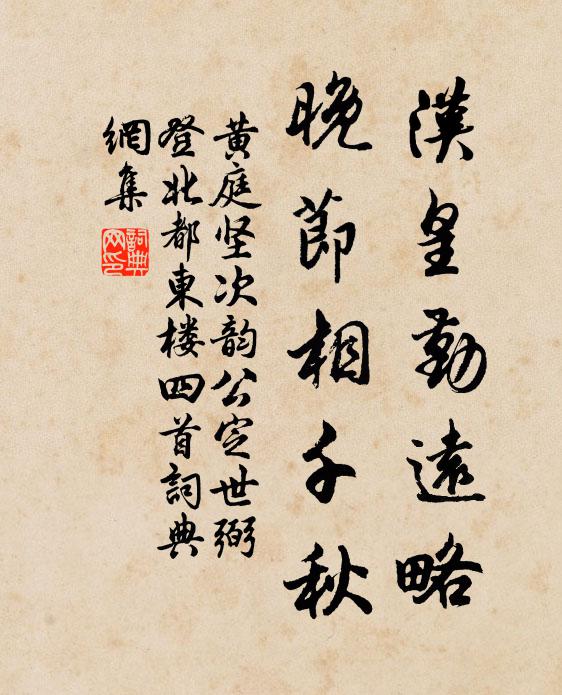 漢皇勤遠略
晚節相千秋
黄庭坚次韵公定世弼
登北都東楼四首詞典
網集
詞典
网印